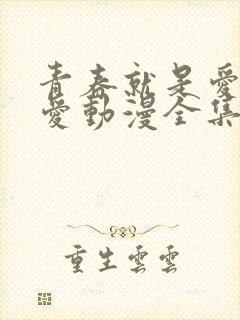 青春就是愛
愛動漫全集
重生雲雲